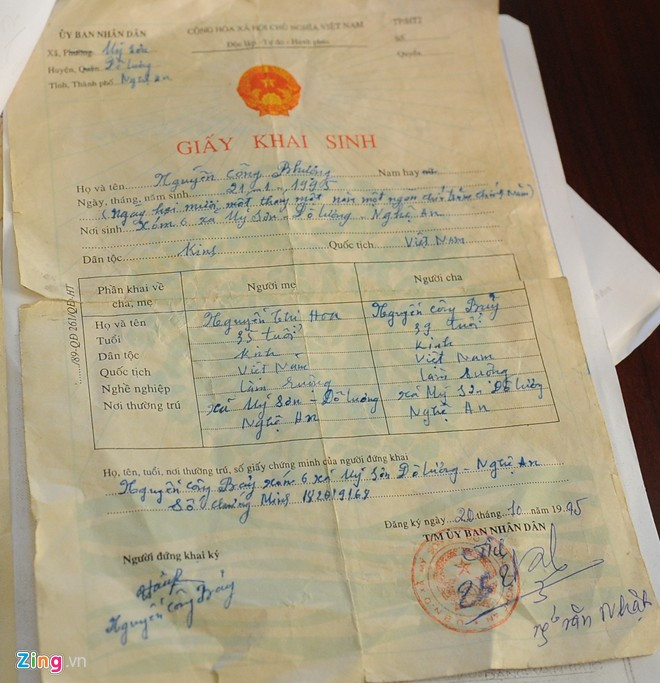 ỦY BAN NHÂN DÂN
Xã, Phường Mỹ Sơn
Huyện, Quận Đô Lương
Tỉnh, Thành phố Nghệ An
CỘNG HÒA XÃ HỘI CHỦ NGHĨA VIỆT NAM
Độc lập - Tự do - Hạnh phúc
Số
Quyển
GIẤY KHAI SINH
Họ và tên Nguyễn Công Phượng Nam hay nữ
Ngày, tháng, năm sinh 21-1-1995
(Ngày hai mươi mốt tháng một năm một ngàn chín trăm chín năm)
Nơi sinh Xóm 6 xã Mỹ Sơn - Đô Lương - Nghệ An
Dân tộc Kinh Quốc tịch Việt Nam
Phần khai về cha, mẹ Người mẹ Người cha
Họ và tên Nguyễn Thị Hoa Nguyễn Công Bảy
Tuổi 35 tuổi 37 tuổi
Dân tộc Kinh Kinh
Quốc tịch Việt Nam Việt Nam
Nghề nghiệp Làm ruộng Làm ruộng
Nơi thường trú xã Mỹ Sơn - Đô Lương xã Mỹ Sơn Đô Lương
Nghệ An Nghệ An
Họ, tên, tuổi, nơi thường trú, số giấy chứng minh của người đứng khai
Nguyễn Công Bảy xóm 6 xã Mỹ Sơn Đô Lương - Nghệ An
Số chứng minh
Đăng ký ngày 20 tháng 10 năm 1995
T/M ỦY BAN NHÂN DÂN
Người đứng khai ký
Nguyễn Công Bảy
Văn Nhật
Zing.vn